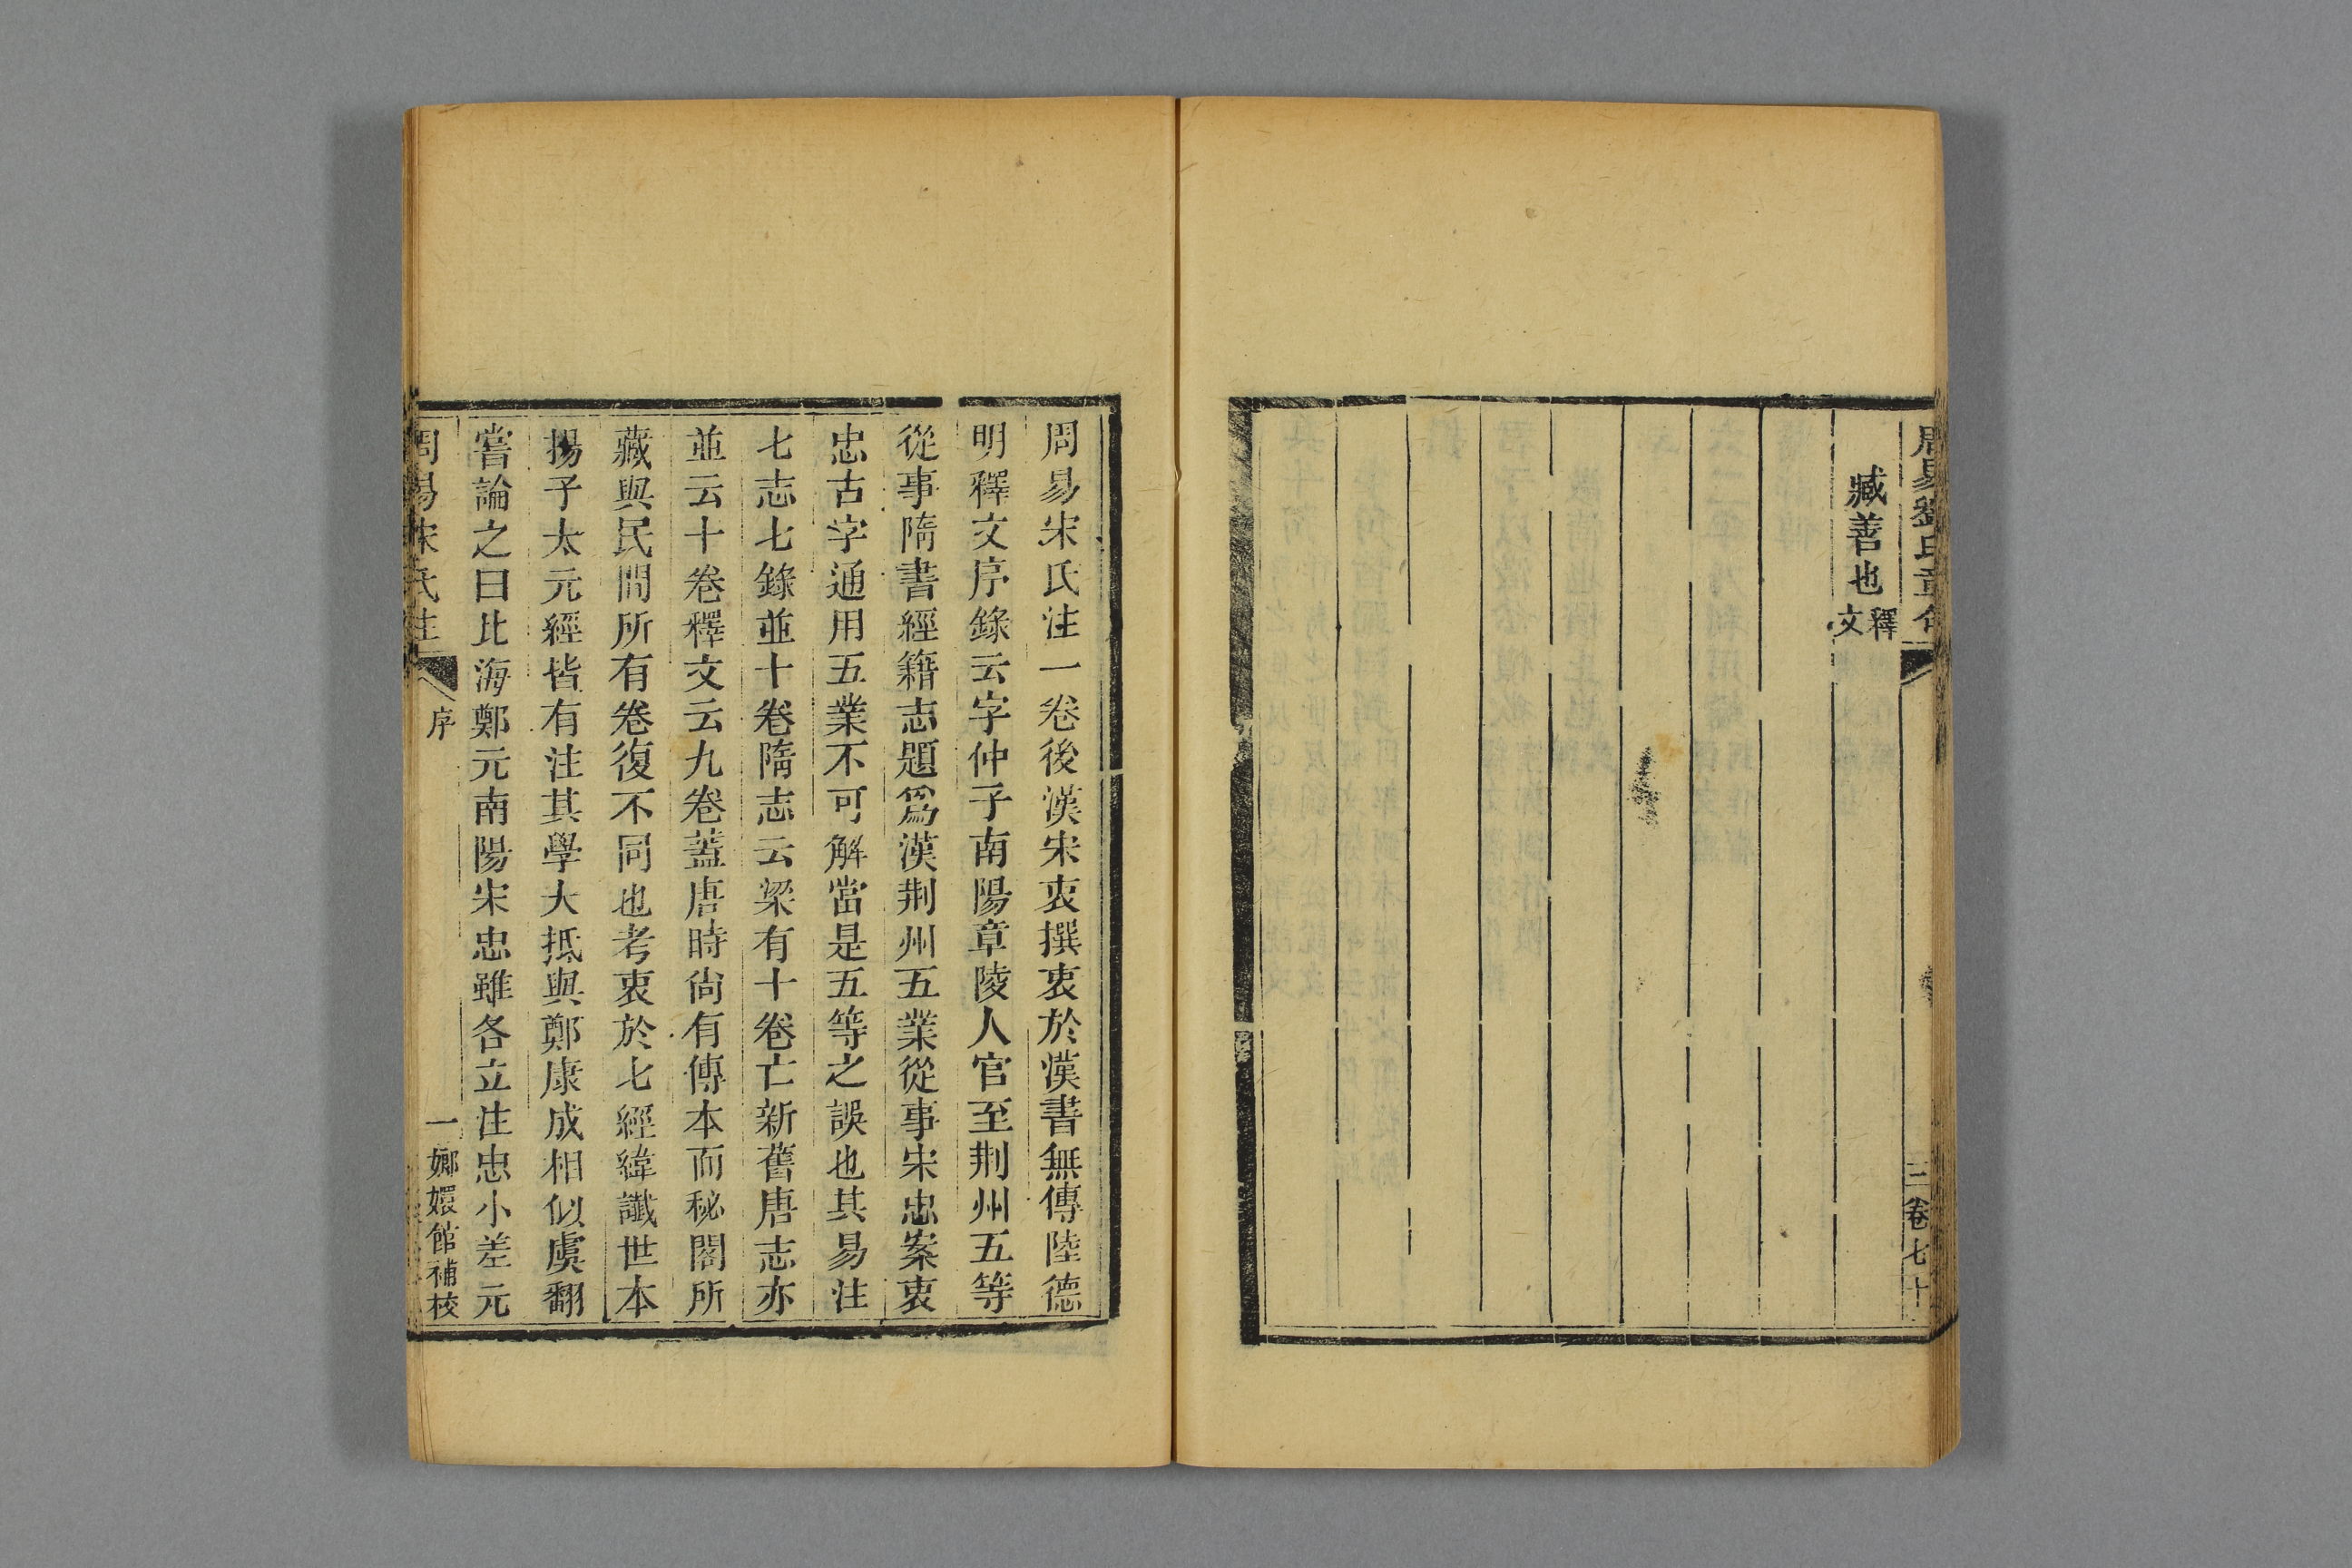 周易劉氏章句
三卷七十
臧善也釋文
周易宋氏注一卷後漢宋衷撰衷於漢書無傳陸德
明釋文序錄云字仲子南陽章陵人官至荆州五等
從事隋書經籍志題爲漢荆州五業從事宋忠案衷
忠古字通用五業不可解當是五等之誤也其易注
七志七錄並十卷隋志云梁有十卷亡新舊唐志亦
並云十卷釋文云九卷蓋唐時尙有傳本而秘閣所
藏與民間所有卷復不同也考衷於七經緯讖世本
揚子太元經皆有注其學大抵與鄭康成相似虞翻
嘗論之曰北海鄭元南陽宋忠雖各立注忠小差元
周易宋氏注
序
一
嫏嬛館補校